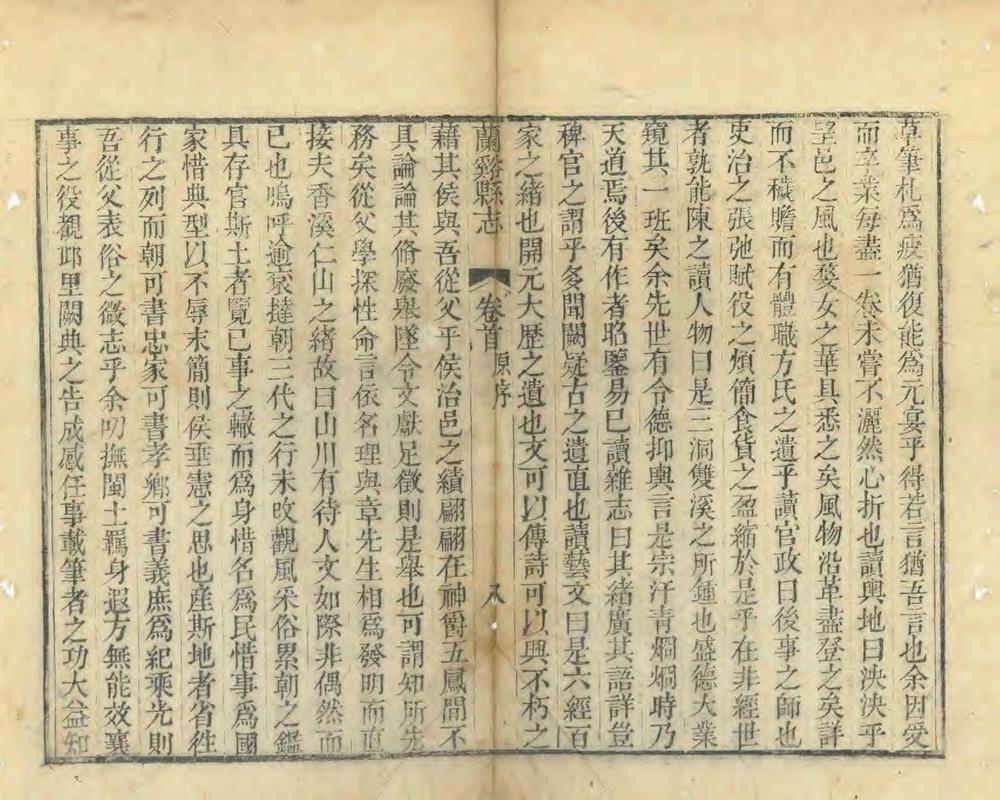 草筆札爲疲猶復能爲元宴乎得若言猶吾言也余因受
而卒業每盡一卷未嘗不灑然心折也讀輿地曰泱泱乎
望邑之風也婺女之華具悉之矣風物沿革盡登之矣詳
而不穢贍而有體職方氏之遺乎讀官政曰後事之師也
吏治之張弛賦役之煩簡食貨之盈縮於是乎在非經世
者孰能陳之讀人物曰是三洞雙溪之所鍾也盛德大業
窺其一班矣余先世有令德抑輿言是宗汗青烱烱時乃
天道焉後有作者昭鑒易已讀雜志曰其緒廣其語詳豈
稗官之謂乎多聞闕疑古之遺直也讀藝文曰是六經百
家之緒也開元大歷之遺也文可以傳詩可以興不朽之
蘭谿縣志 卷首 原序 八
藉其侯與吾從父乎侯治邑之績翩翩在神爵五鳳間不
具論論其脩廢舉墜令文獻足徵則是舉也可謂知所先
務矣從父學探性命言依名理與章先生相爲發明而直
接夫香溪仁山之緒故曰山川有待人文如際非偶然而
已也嗚呼逾衮撻朝三代之行未改觀風采俗累朝之鑑
具存官斯土者覽已事之轍而爲身惜名爲民惜事爲國
家惜典型以不辱末簡則侯垂憲之思也産斯地者省徃
行之列而朝可書忠家可書孝鄉可書義庶爲紀乘光則
吾從父表俗之微志乎余叨撫閩土羈身遐方無能效襄
事之役觀邵里闕典之告成感任事載筆者之功大益知